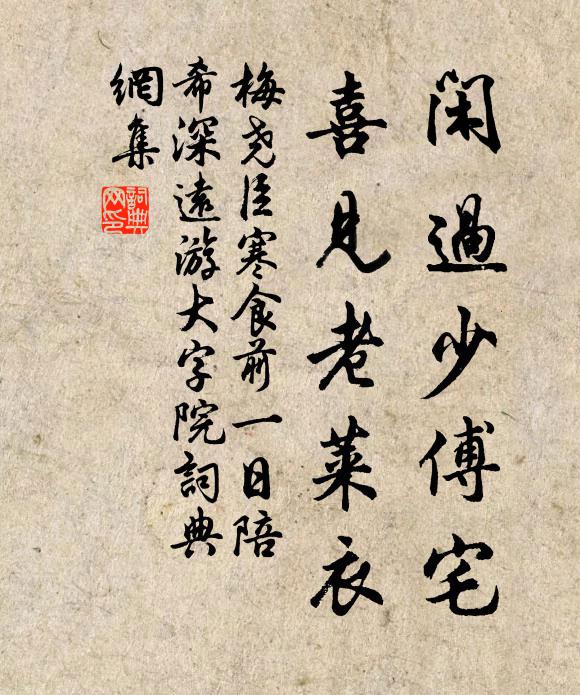 閑過少傅宅
喜見老萊衣
梅堯臣寒食前一日陪
希深遠游大字院詞典
網集
詞典網印